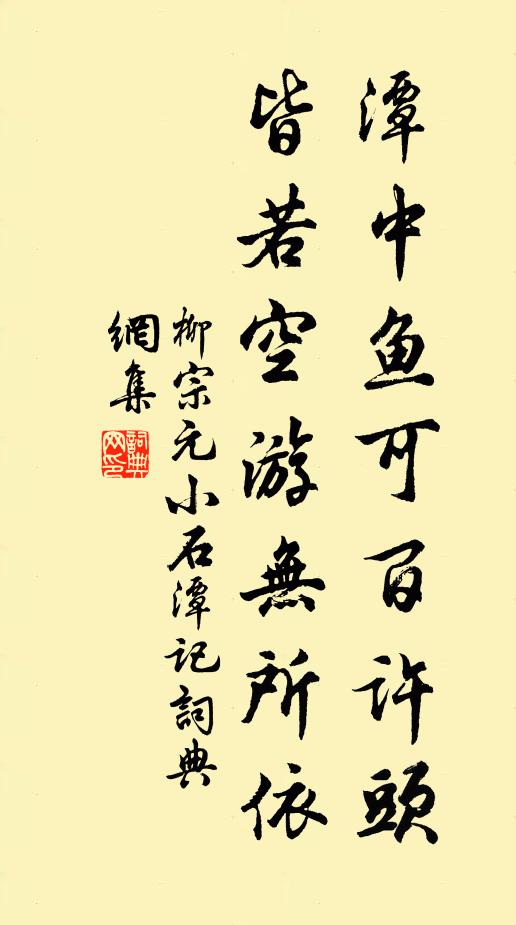 潭中鱼可百许頭
皆若空游無所依
柳宗元小石潭记詞典
網集
詞典
网印